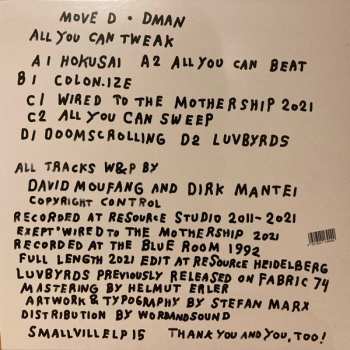 MOVE D • DMAN
ALL YOU CAN TWEAK
A1 HOKUSAI A2 ALL YOU CAN BEAT
B1 COLON.IZE
C1 WIRED TO THE MOTHERSHIP 2021
C2 ALL YOU CAN SWEEP
D1 DOOMSCROLLING D2 LUVBYRDS
ALL TRACKS W&P BY
DAVID MOUFANG AND DIRK MANTEI
COPYRIGHT CONTROL
RECORDED AT RESOURCE STUDIO 2011-2021
EXEPT WIRED TO THE MOTHERSHIP 2021
RECORDED AT THE BLUE ROOM 1992
FULL LENGTH 2021 EDIT AT RESOURCE HEIDELBERG
LUVBYRDS PREVIOUSLY RELEASED ON FABRIC 74
MASTERING BY HELMUT ERLER
ARTWORK & TYPOGRAPHY BY STEFAN MARX
DISTRIBUTION BY WORDANDSOUND
SMALLVILLELP15 THANK YOU AND YOU, TOO!